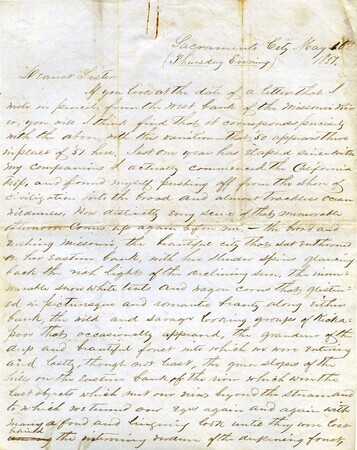 Sacramento City May
(Thursday Evening) 1851
Dearest Sister
If you look at the date of a letter that I
wrote in pencil from the West bank of the Missouri Riv
er, you will I think find that it corresponds precisely
with the above with this variation that 50 appears there
in place of 51 here. Just one year has elapsed since with
my companions I actually commenced the California
trip, and found myself pushing off from the shore of
civilization into the broad and almost trackless ocean
wilderness. How distinctly every scene of that memorable
afternoon comes up again upon me — the broad and
rushing Missouri, the beautiful city that sat enthroned
on her Eastern bank with her slender spires glancing
back the rich light of the declining sun, the innu-
merable snow white tents and wagon covers that glisten-
ed in picturesque and romantic beauty along either
bank the wild and savage looking groups of Kicka-
poos that occasionally appeared, the grandeur of the
deep and beautiful forest into which we were entering
and lastly though not least, the green slopes of the
hills on the Eastern bank of the river which were the
last objects which met our view beyond the stream and
to which we turned our eyes again and again with
many a fond and lingering look until they were lost
the intervening of the deepening forest